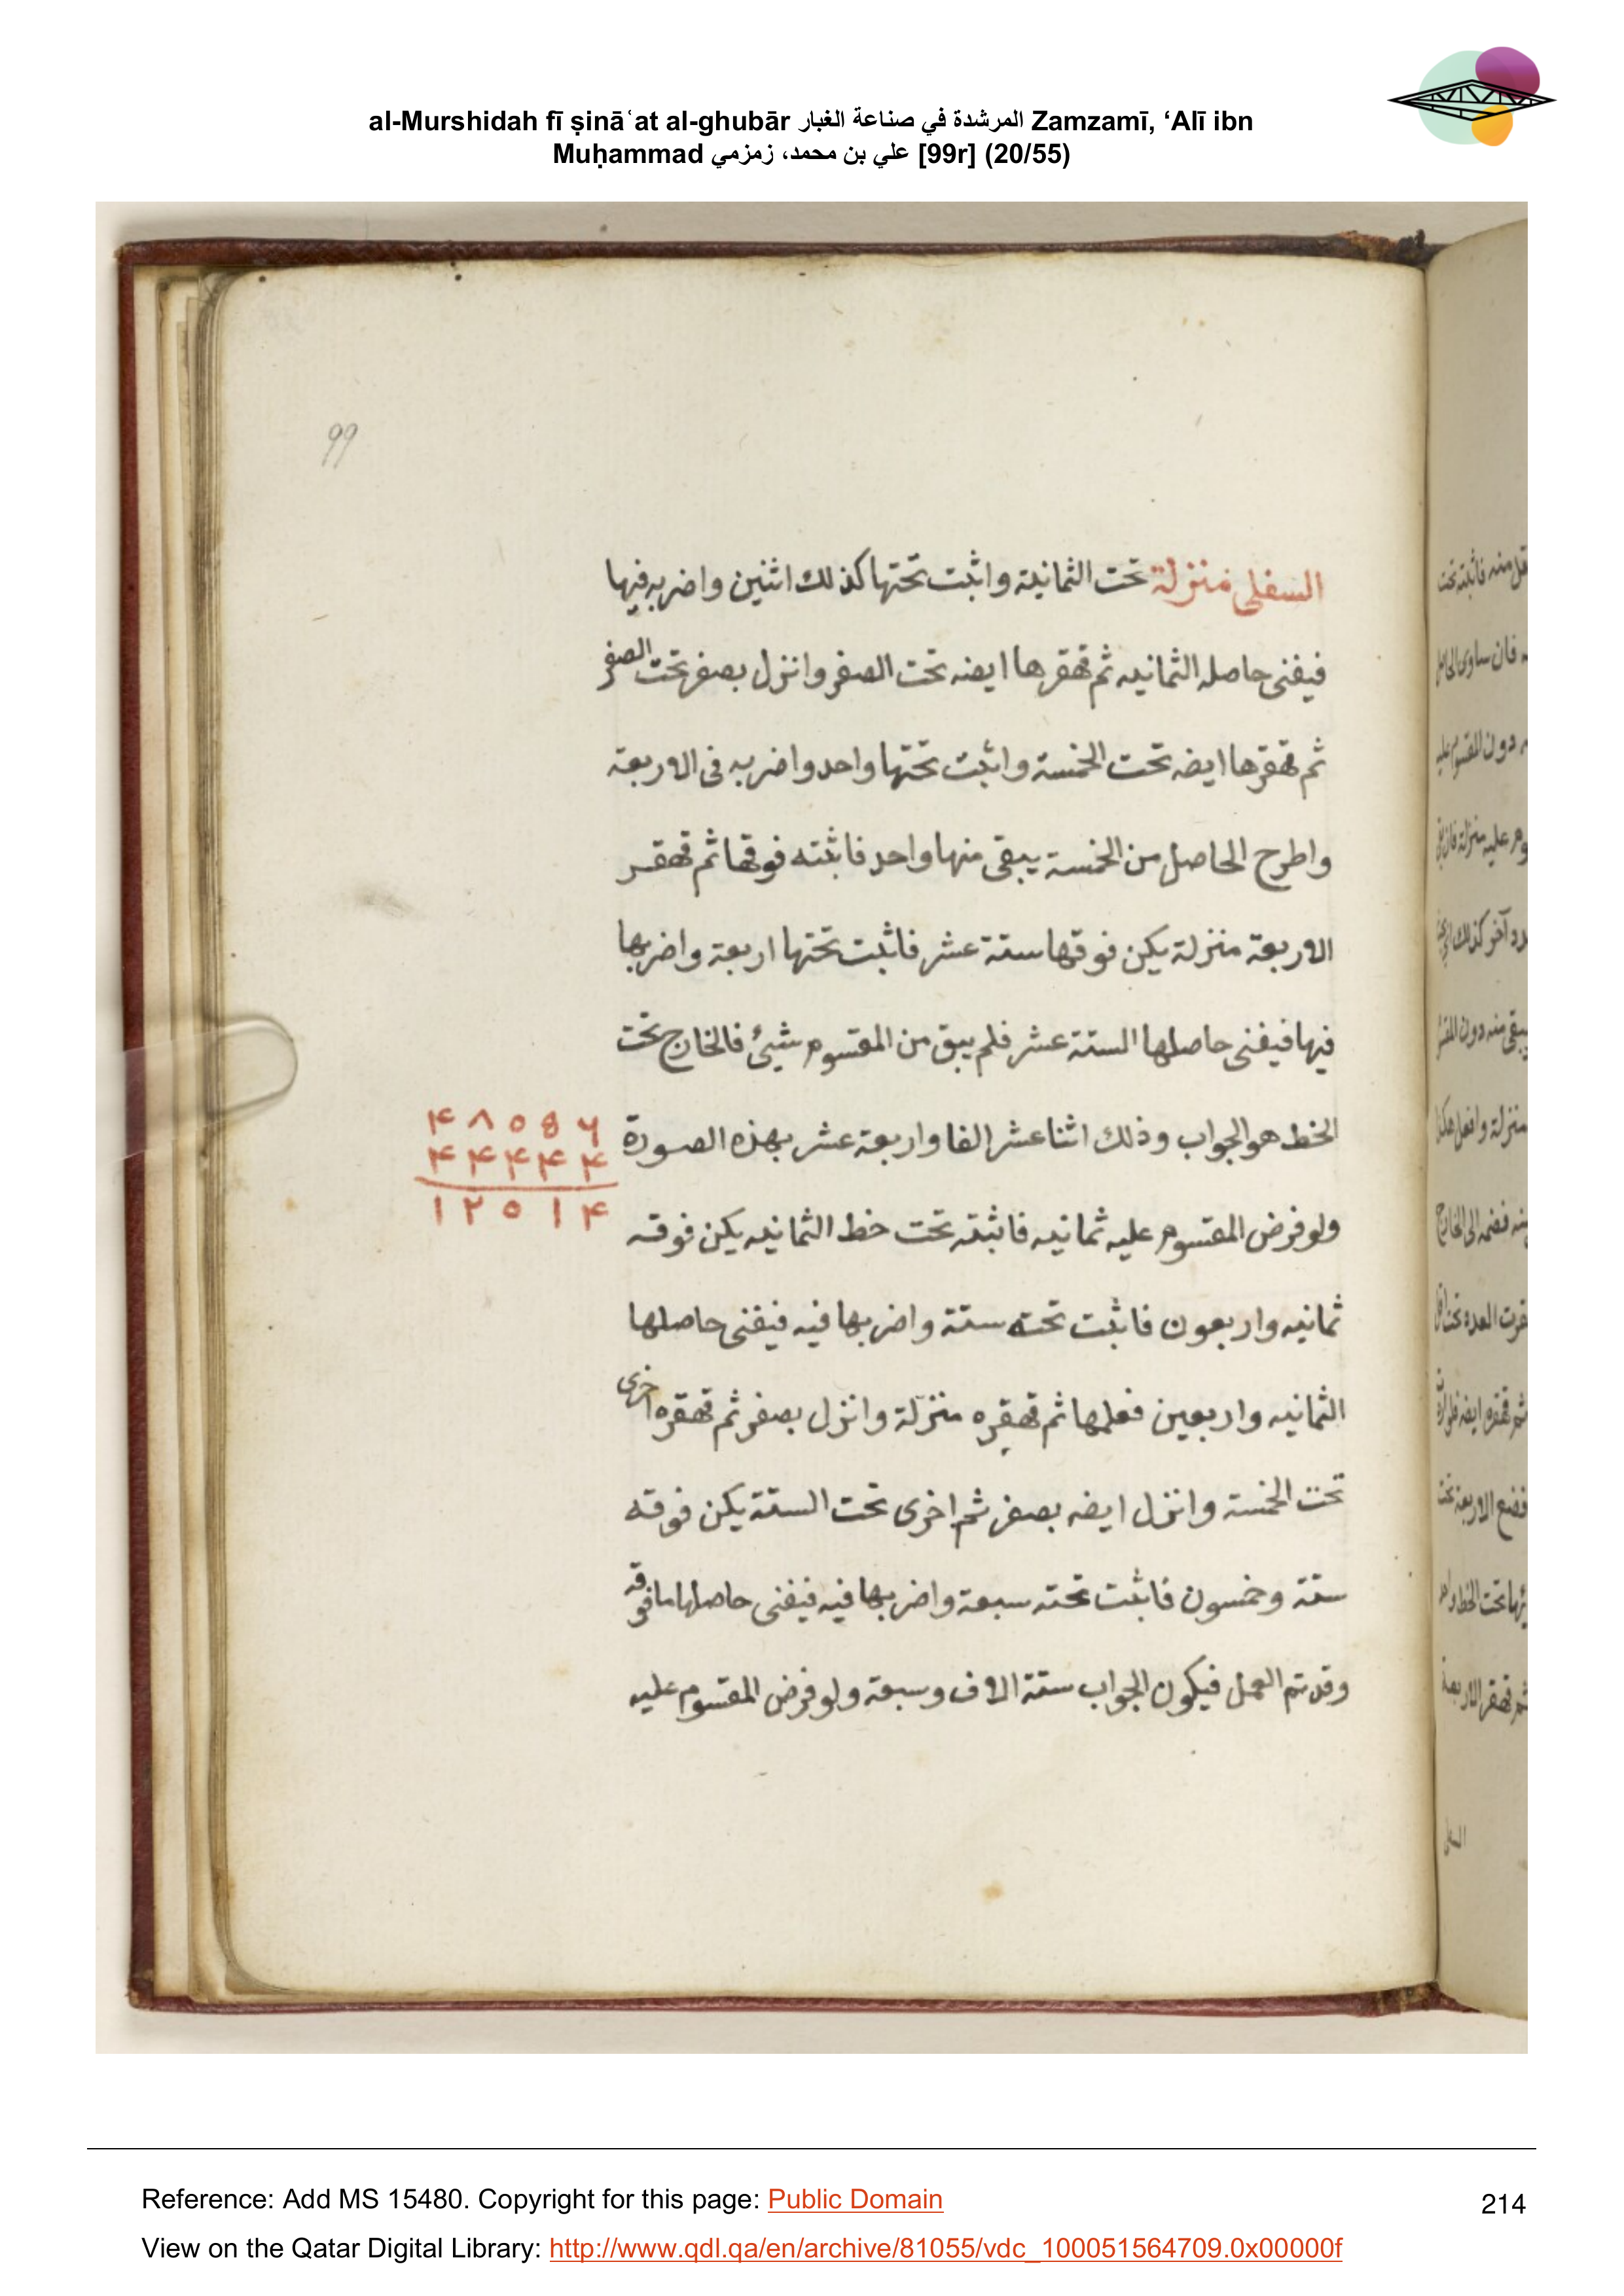 al-Murshidah fī ṣināʿat al-ghubār المرشدة في صناعة الغبار Zamzamī, ‘Alī ibn
Muḥammad علي بن محمد، زمزمي [99r] (20/55)
99
السفلى منزلة تحت الثمانية واثبت تحتها كذلك اثنين واضربه فيها
فيفنى حاصله الثمانيه ثم قهقرها ايضه تحت الصفر وانزل بصفر تحت الصفر
ثم قهقرها ايضه تحت الخمسة واثبت تحتها واحد واضربه فى الاربعة
واطرح الحاصل من الخمسة يبقى منها واحد فاثبته فوقها ثم قهقر
الاربعة منزلة يكن فوقها ستة عشر فاثبت تحتها اربعة واضربها
فيها فيفنى حاصلها الستة عشر فلم يبق من المقسوم شيئ فالخارج تحت
الخط هو الجواب وذلك اثنا عشر الفا واربعة عشر بهذه الصورة
۴ ۸ ٥ 8 ۶
۴ ۴ ۴ ۴ ۴
۱ ۲ ٥ ۱ ۴
ولو فرض المقسوم عليه ثمانيه فاثبته تحت خط الثمانيه يكن فوقه
ثمانيه واربعون فاثبت تحته ستة واضربها فيه فيفنى حاصلها
الثمانيه واربعين فعلمها ثم قهقره منزلة وانزل بصفر ثم قهقره اخرى
تحت الخمسة وانزل ايضه بصفر ثم اخرى تحت الستة يكن فوقه
ستة وخمسون فاثبت تحته سبعة واضربها فيه فيفنى حاصلها ما فوقه
وقد تم العمل فيكون الجواب ستة الاف وسبعة ولو فرض المقسوم عليه
Reference: Add MS 15480. Copyright for this page: Public Domain
214
View on the Qatar Digital Library: http://www.qdl.qa/en/archive/81055/vdc_100051564709.0x00000f